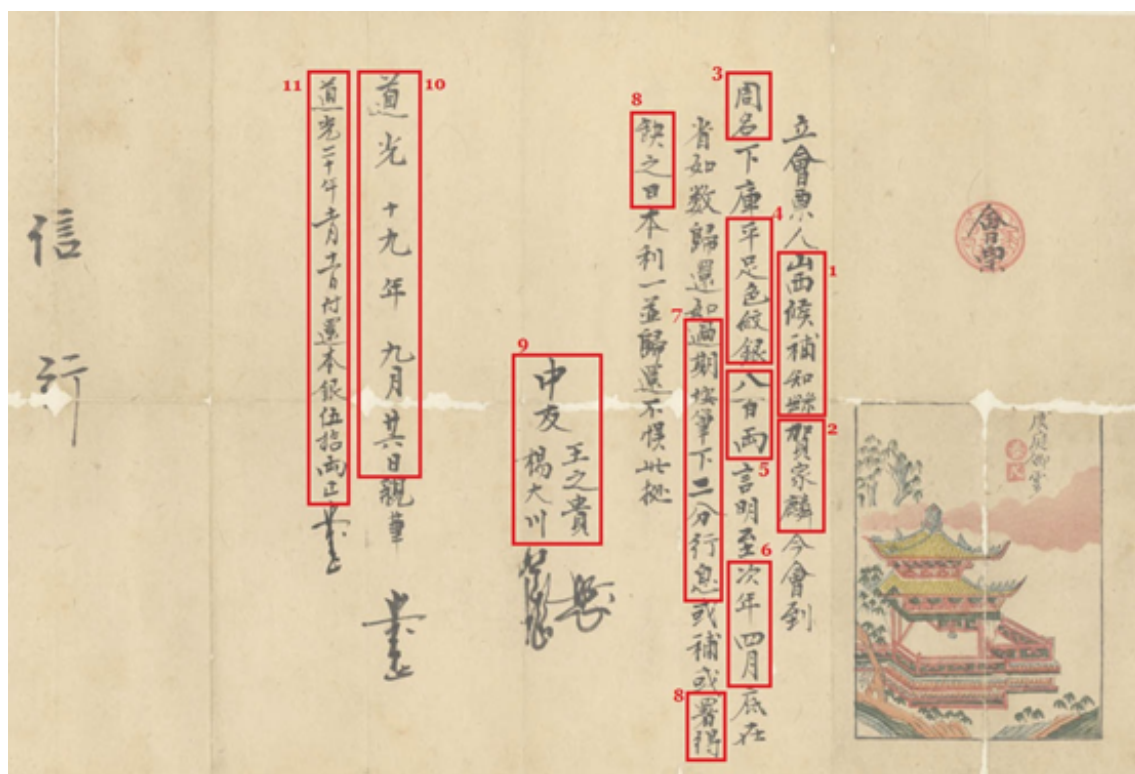 會票
立會票人山西候補知縣賀家麟今會到
周名下庫平足色紋銀八百兩言明至次年四月底在
省如数歸還如過期按筆下二分行息或補或署得
缺之日本利一並歸還不悞此拠
中友
王之貴
楊大川
道光十九年九月廿六日親筆
道光二十年十一月十一日付還本銀伍拾兩正
信行
1
2
3
4
5
6
7
8
8
9
10
11